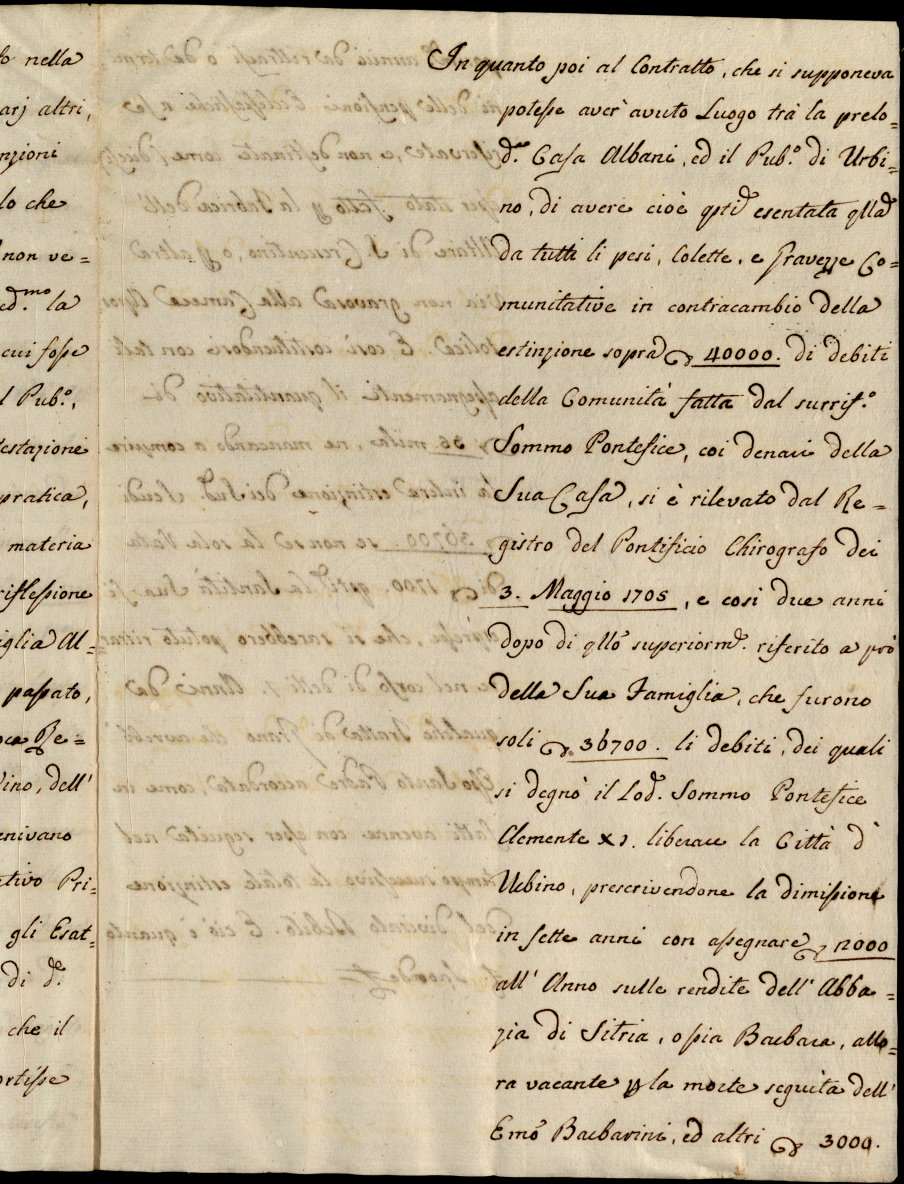 o nella
arj altri,
nzioni
lo che
non ve=
ed.mo la
cui fosse
l Pub.o,
testazione
pratica,
materia
riflessione
iglia Al=
passato,
oca Re=
ino, dell'
enivano
ativo Pri=
gli Esat=
di d.e
che il
ortisse
In quanto poi al Contratto, che si supponeva
potesse aver' avuto Luogo trà la prelo=
d.a Casa Albani, ed il Pub.o di Urbi=
no, di avere cioè qsti esentata qlla
da tutti li pesi, Colette, e Gravezze Co=
munitative in contracambio della
estinzione sopra 40000. di debiti
della Comunità fatta dal surrif.o
Sommo Pontefice, coi denari della
Sua Casa, si è rilevato dal Re=
gistro del Pontificio Chirografo dei
3. Maggio 1705, e così due anni
dopo di qllo superiorm. riferito a prò
della Sua Famiglia, che furono
soli 36700. li debiti, dei quali
si degnò il Lod. Sommo Pontefice
Clemente XI. liberare la Città d'
Urbino, prescrivendone la dimissione
in sette anni con assegnare 2000
all' Anno sulle rendite dell' Abba=
zia di Sitria, ossia Barbara, allo=
ra vacante p la morte seguita dell'
Emo Barbarini, ed altri 3000.